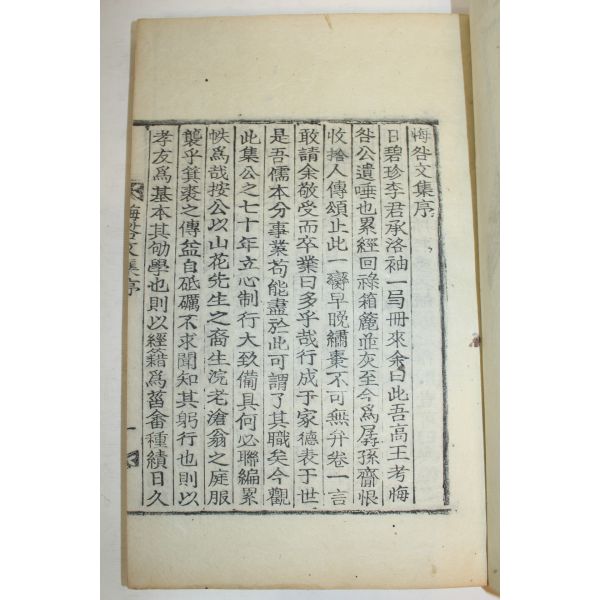 悔咎文集序
日碧珍李君承洛袖一写冊來余曰此吾高王考悔
咎公遺唾也累經回祿箱簏並灰至今爲孱孫齎恨
收捨人傳頌止此一臠早晩繡棗不可無弁卷一言
敢請余敬受而卒業曰多乎哉行成于家德表于世
是吾儒本分事業苟能盡於此可謂了其職矣今觀
此集公之七十年立心制行大致備具何必聯編累
帙爲哉按公以山花先生之裔生浣老滄翁之庭服
襲乎箕裘之傳益自砥礪不求聞知其躬行也則以
孝友爲基本其劬學也則以經籍爲菑畬種績日久
悔咎文集序
一